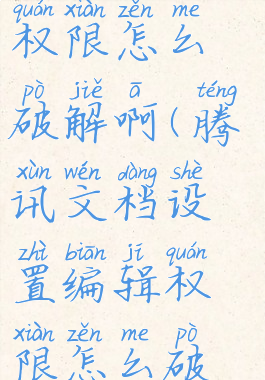 quán xiàn zěn me
权限怎么
pò jiě ā téng
破解啊(腾
xùn wén dàng shè
讯文档设
zhì biān jí quán
置编辑权
xiàn zěn me pò
限怎么破